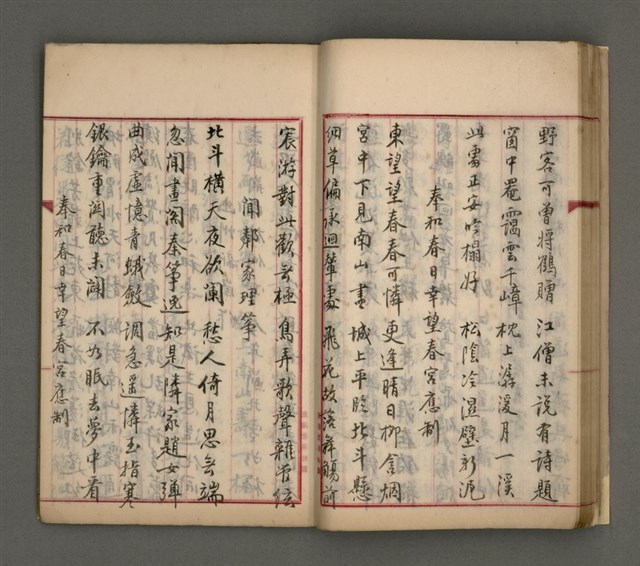 野客可曾將鶴贈 江僧未說有詩題
窗中靄靄雲千嶂 枕上潺湲月一溪
此處正安吟榻好 松陰冷濕壁新泥
奉和春日幸望春宮應制
東望望春春可憐 更逢晴日柳含烟
宮中下見南山盡 城上平臨北斗懸
細草偏承迴輦處 飛花故落舞觴前
宸游對此歡無極 鳥弄歌聲雜管絃
聞鄰家理箏
北斗橫天夜欲闌 愁人倚月思無端
忽聞畫閣秦箏逸 知是隣家趙女彈
曲成虛憶青蛾斂 調急遥憐玉指寒
銀鑰重關聽未闢 不如眠去夢中看
奉和春日幸望春宮應制